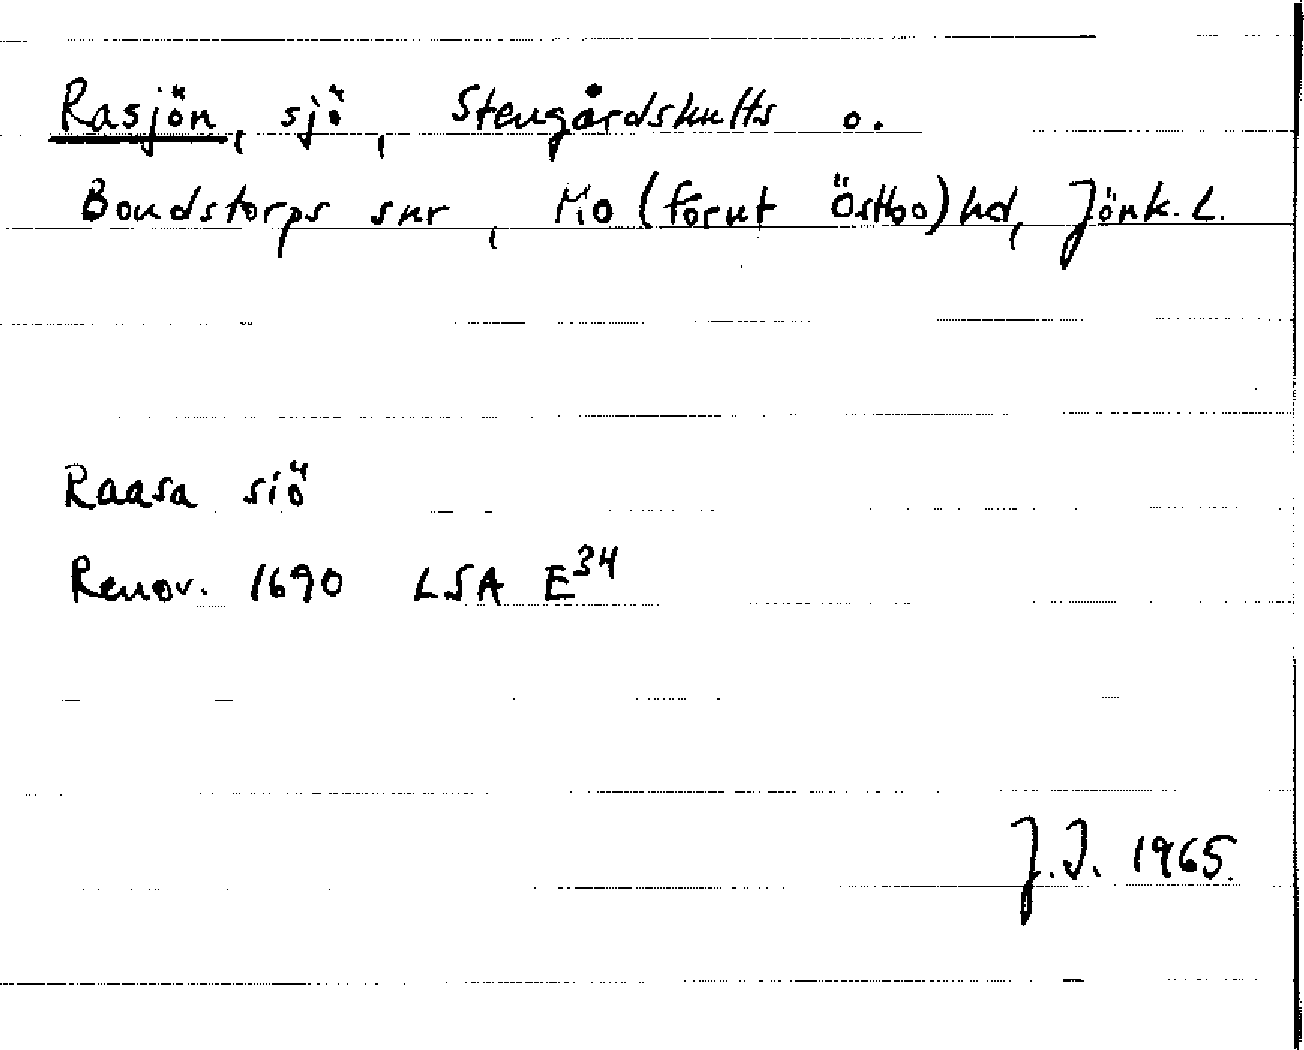 Rasjön, sjö, Stengårdshults o.
Bondstorps snr, Mo (förut Östbo) hd, Jönk. L.
Raasa siö
Renov. 1690 LSA E³⁴
J.I. 1965.